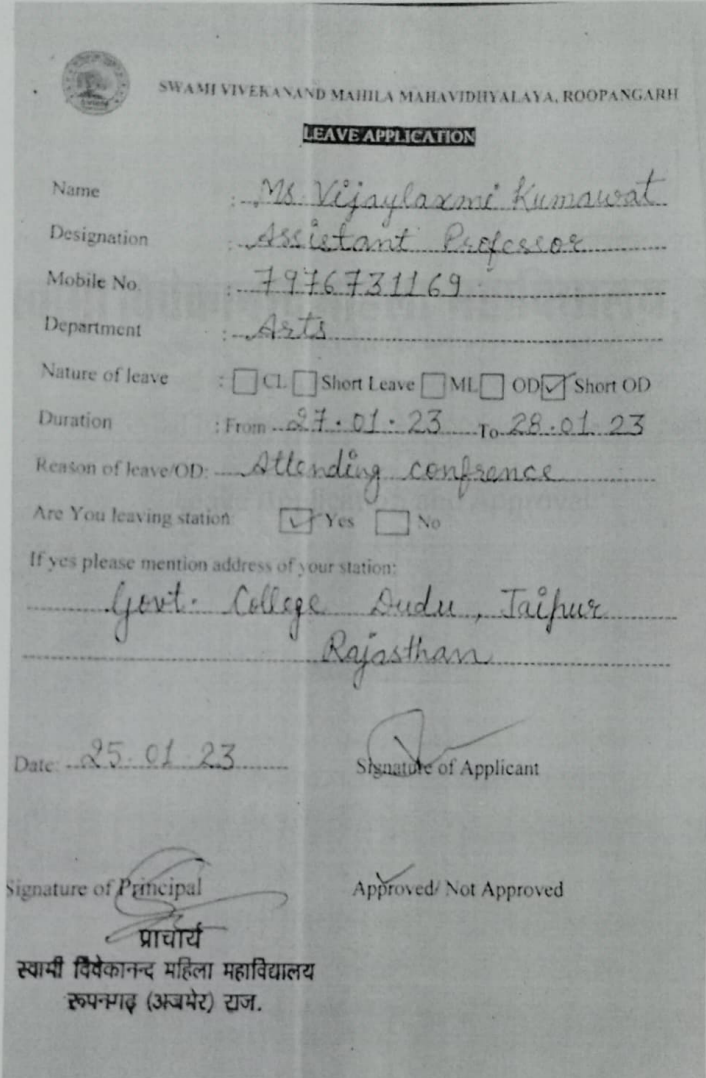 SWAMI VIVEKANAND MAHILA MAHAVIDHYALAYA, ROOPANGARH
LEAVE APPLICATION
Name : Ms. Vijaylaxmi Kumawat
Designation : Assistant Professor
Mobile No. : 7976731169
Department : Arts
Nature of leave : CL Short Leave ML OD Short OD
Duration : From 27.01.23 To 28.01.23
Reason of leave/OD: Attending confrence
Are You leaving station: Yes No
If yes please mention address of your station:
Govt. College Dudu, Jaipur
Rajasthan
Date: 25.01.23 Signature of Applicant
Signature of Principal Approved/ Not Approved
प्राचार्य
स्वामी विवेकानन्द महिला महाविद्यालय
रूपनगढ़ (अजमेर) राज.